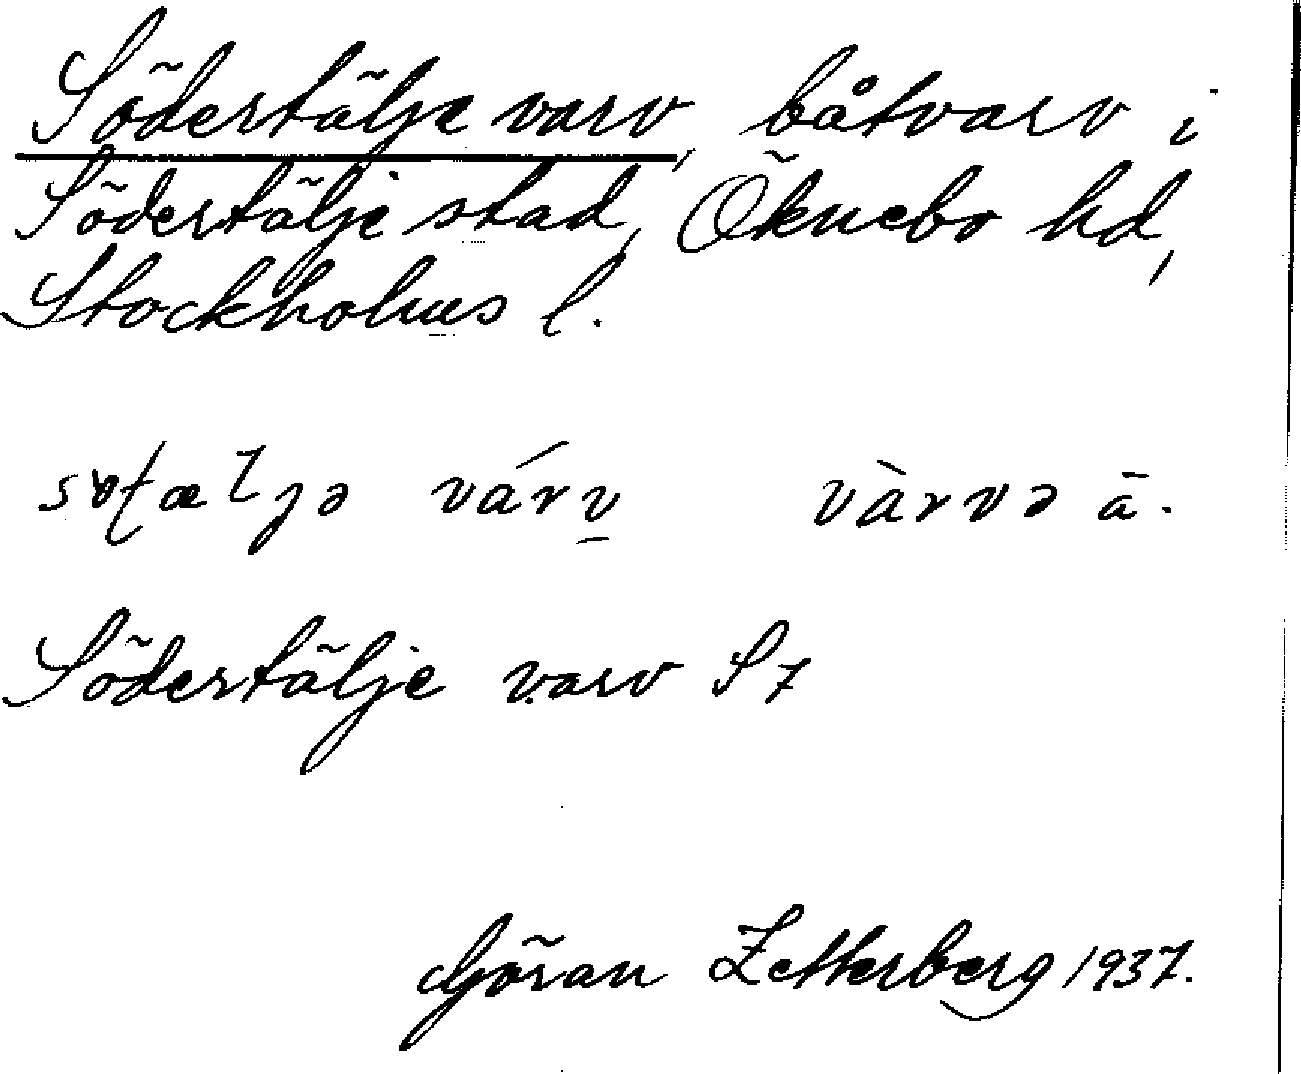 Södertälje varv, båtvarv i
Södertälje stad, Öknebo hd,
Stockholms l.
várv vàrvə ā.
Södertälje varv S7
Göran Zetterberg 1937.